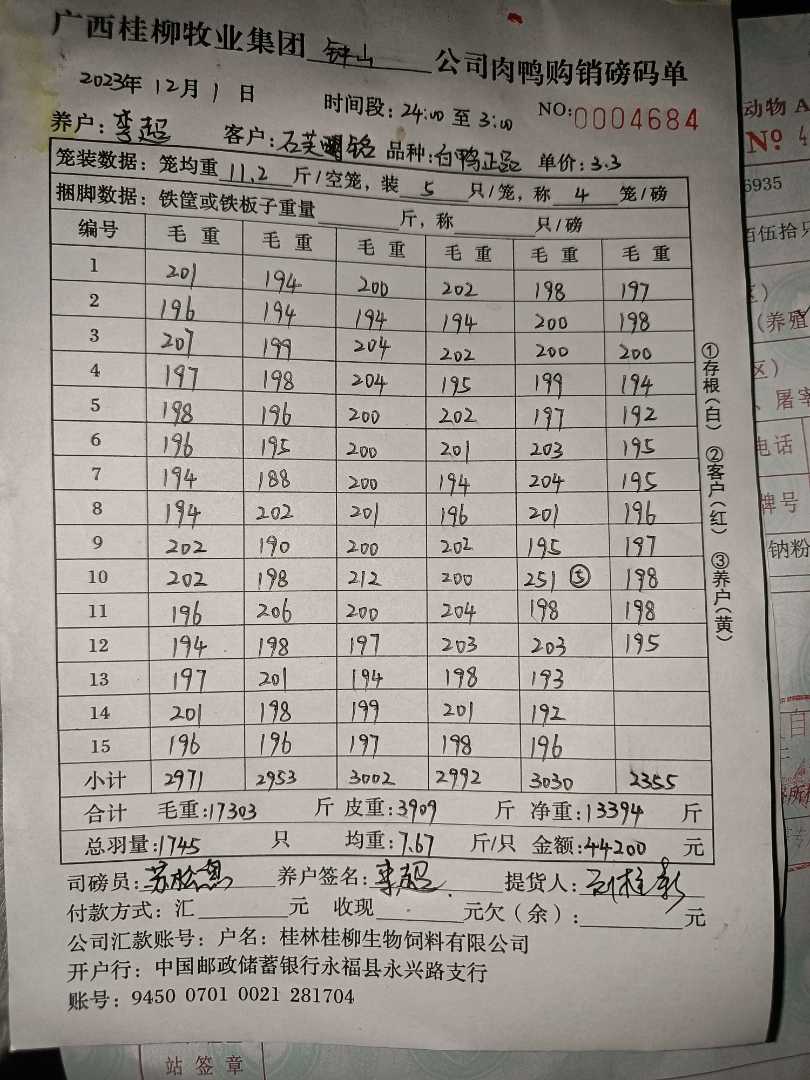 广西桂柳牧业集团 钟山 公司肉鸭购销磅码单
2023年 12月 1 日 时间段: 24:00 至 3:00 NO:0004684
养户: 李超 客户: 石芙明铭 品种: 白鸭正品 单价: 3.3
笼装数据: 笼均重 11.2 斤/空笼, 装 5 只/笼, 称 4 笼/磅
捆脚数据: 铁筐或铁板子重量 斤, 称 只/磅
编号 毛重 毛重 毛重 毛重 毛重 毛重
1 201 194 200 202 198 197
2 196 194 194 194 200 198
3 207 199 204 202 200 200
4 197 198 204 195 199 194
5 198 196 200 202 197 192
6 196 195 200 201 203 195
7 194 188 200 194 204 195
8 194 202 201 196 201 196
9 202 190 200 202 195 197
10 202 198 212 200 251 ⑤ 198
11 196 206 200 204 198 198
12 194 198 197 203 203 195
13 197 201 194 198 193
14 201 198 199 201 192
15 196 196 197 198 196
小计 2971 2953 3002 2992 3030 2355
合计 毛重:17303 斤 皮重:3909 斤 净重:13394 斤
总羽量:1745 只 均重:7.67 斤/只 金额:44200 元
司磅员: 养户签名: 李超 提货人:
付款方式: 汇 元 收现 元欠(余): 元
公司汇款账号: 户名: 桂林桂柳生物饲料有限公司
开户行: 中国邮政储蓄银行永福县永兴路支行
账号: 9450 0701 0021 281704
①存根(白) ②客户(红) ③养户(黄)
动物 A
№ 4
6935
佰伍拾只
区)
(养殖
区)
、屠宰
电话
牌号
钠粉
站签章